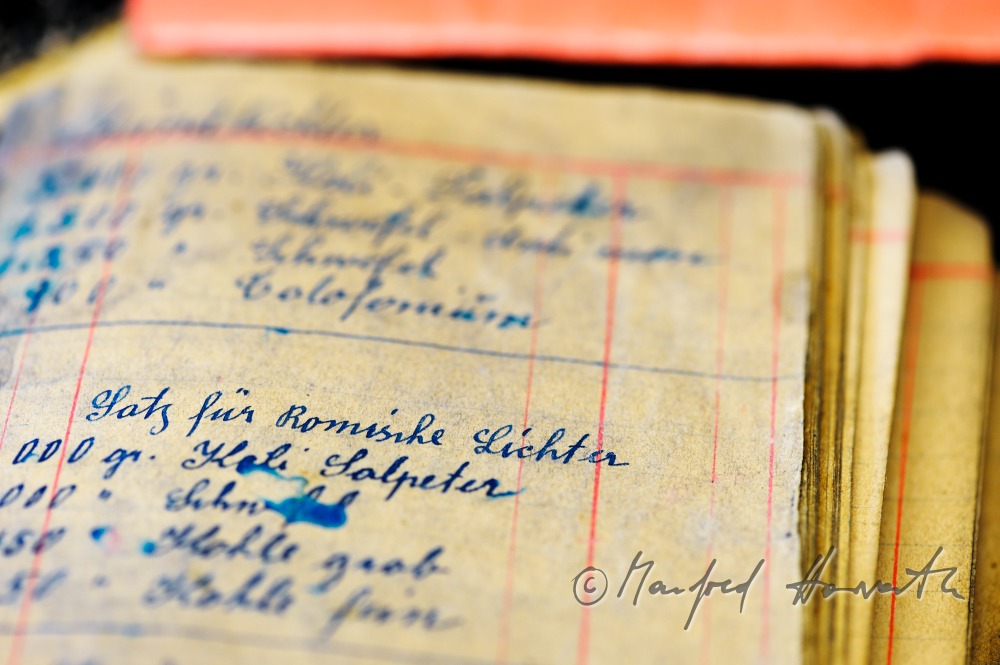 gr. Kali Salpeter
gr. Schwefel
" Schwefel
900 " Colofonium
Satz für Römische Lichter
000 gr. Kali Salpeter
000 " Schwefel
150 " Kohle grob
50 " Kohle fein
© Manfred Horvath